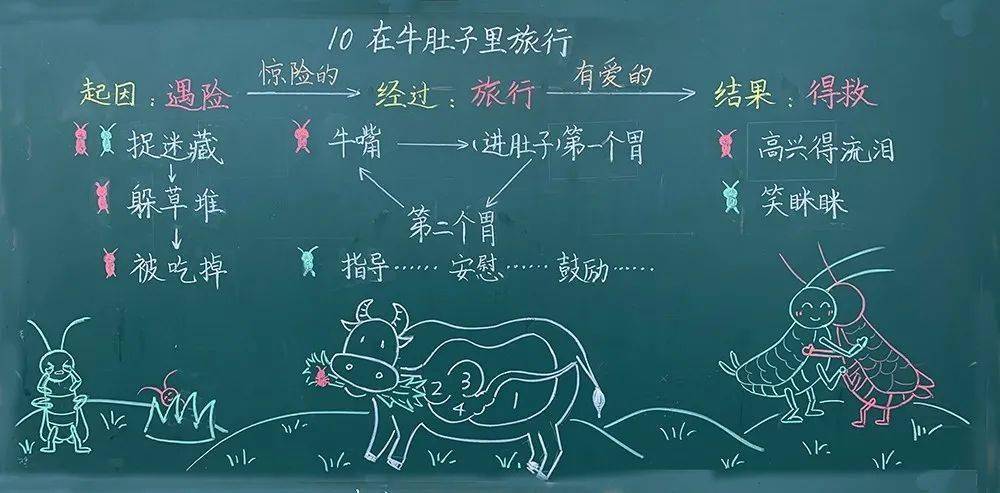 10 在牛肚子里旅行
起因：遇险 惊险的 经过：旅行 有爱的 结果：得救
捉迷藏 牛嘴 (进肚子)第一个胃 高兴得流泪
躲草堆 第二个胃 笑眯眯
被吃掉 指导…… 安慰…… 鼓励……
2 3
4 1